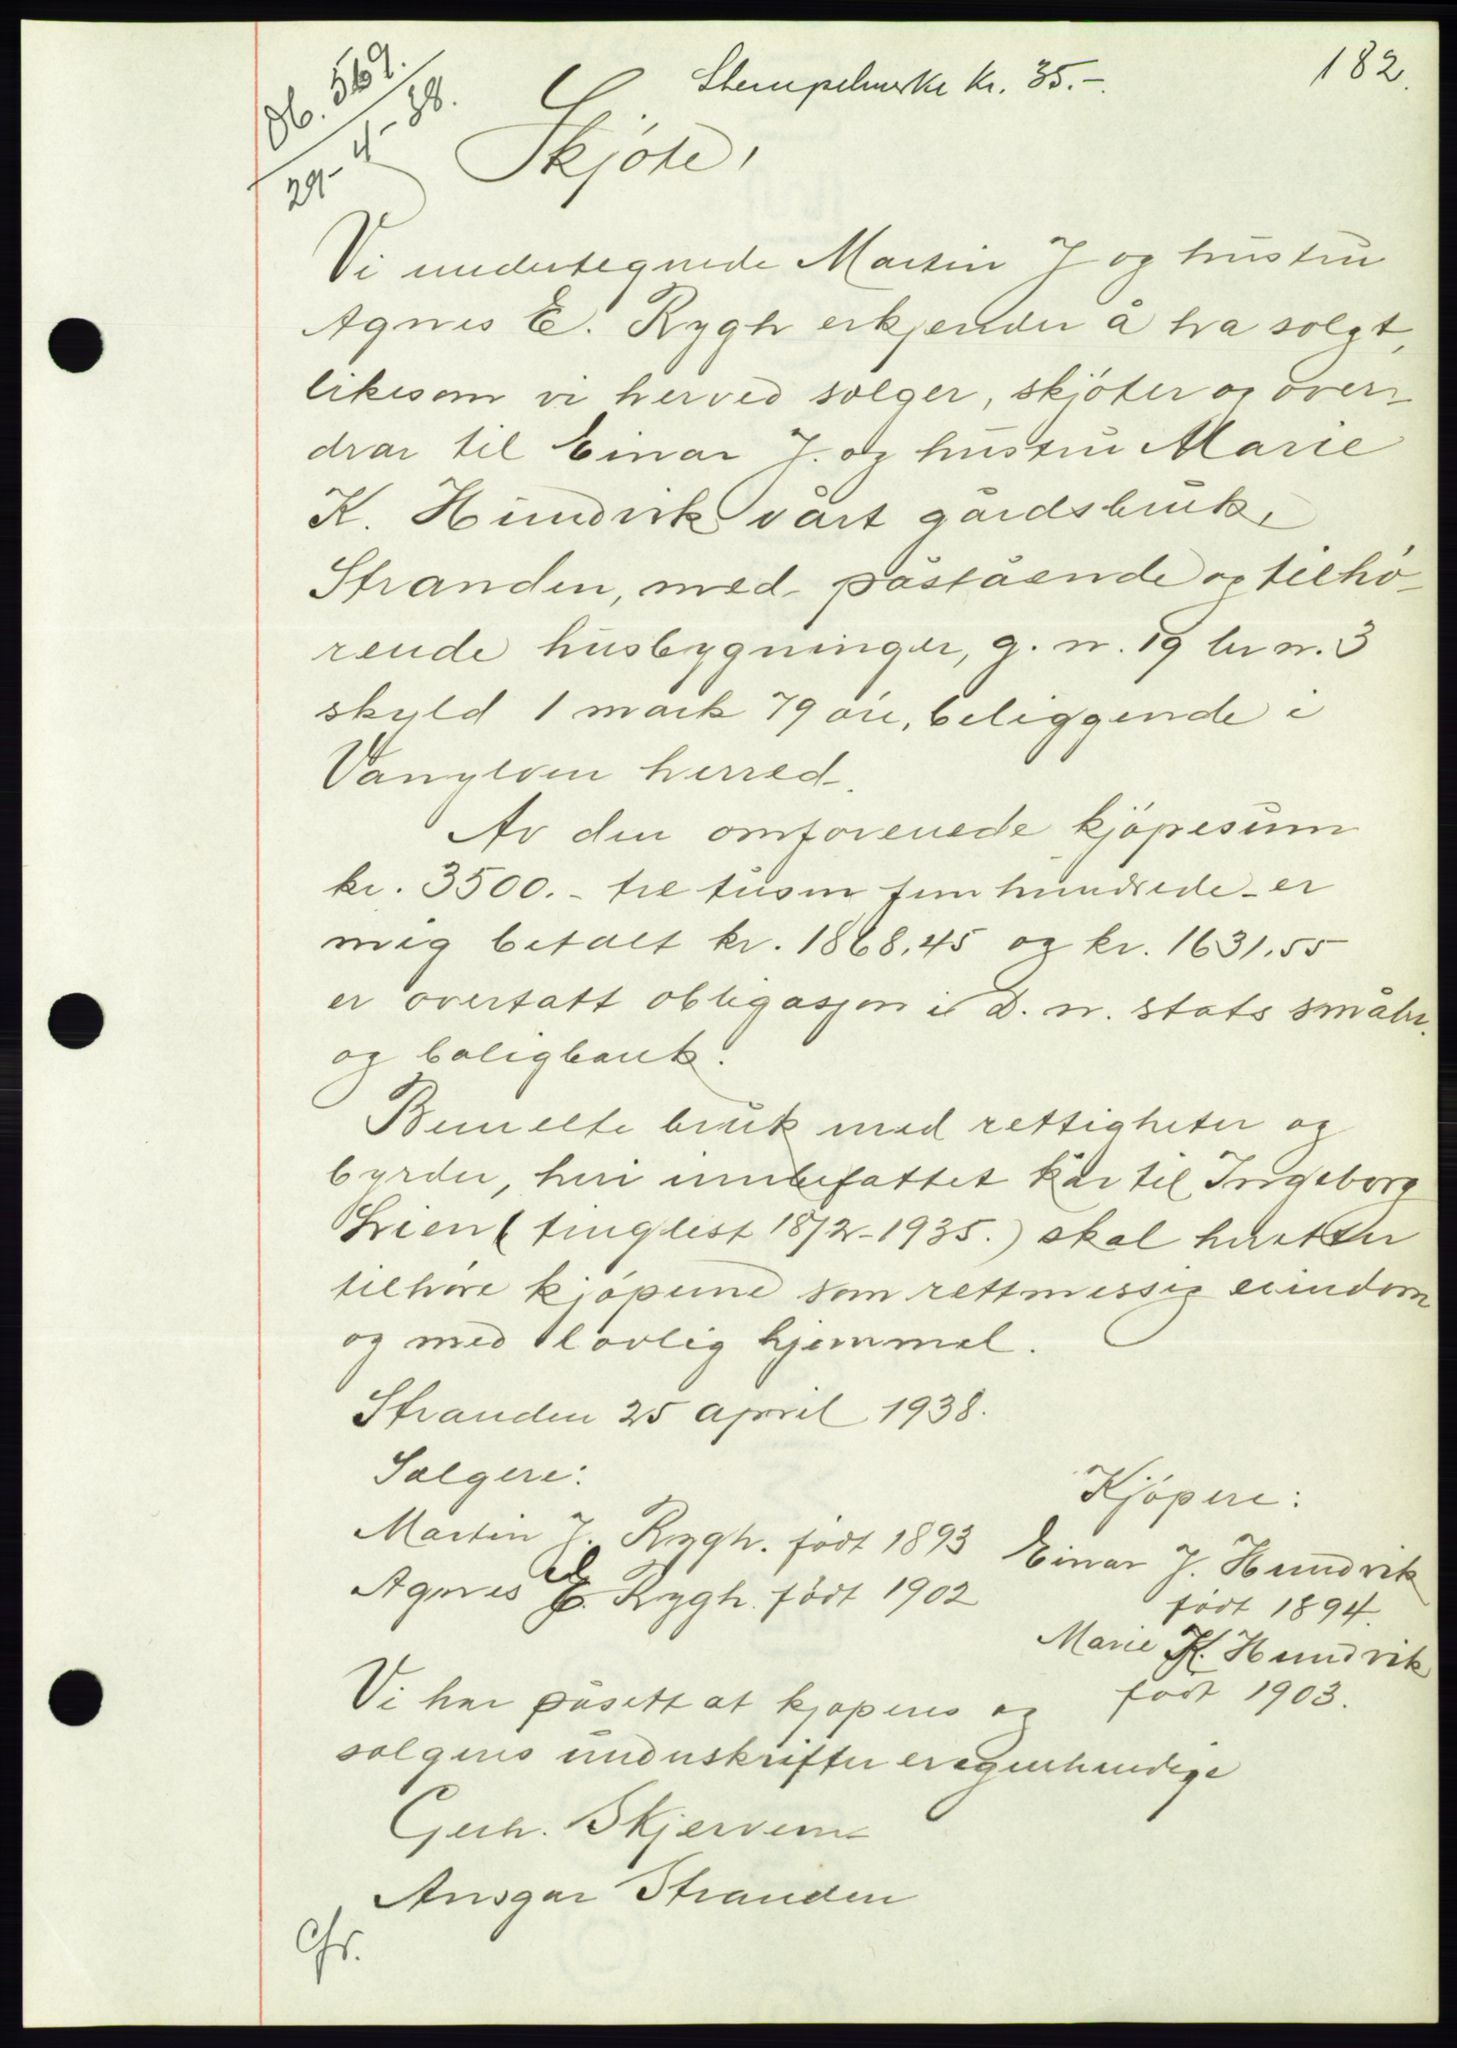 182.
Db. 569.
29-4-38.
Stempelmerke kr. 35.-.
Skjöte,
Vi undertegnede Martin J og hustru
Agnes E. Rygh erkjender å ha solgt,
likesom vi herved selger, skjöter og over-
drar til Einar J. og hustru Marie
K. Hundvik vårt gårdsbruk,
Stranden, med påstående og tilhö-
rende husbygninger, g. n. 19 br n. 3
skyld 1 mark 79 öre, beliggende i
Vanylven herred.
Av den omforenede kjöpesum
kr. 3500.- tre tusen femhundrede - er
mig betalt kr. 1868,45 og kr. 1631,55
er overtatt obligasjon i D. n. stats småbr.
og boligbank.
Bemelte bruk med rettigheter og
byrder, heri innbefattet kår til Ingeborg
Lien (tinglest 18/2-1935.) skal herefter
tilhöre kjöperne som rettmessig eiendom
og med lovlig hjemmel.
Stranden 25 april 1938.
Selgere:
Martin J. Rygh. födt 1893
Agnes E. Rygh. födt 1902
Kjöpere:
Einar J. Hundvik
födt 1894.
Marie K. Hundvik
födt 1903.
Vi har påsett at kjöperes og
selgeres underskrifter er egenhendige
Gerh. Skjervem
Ansgar Stranden